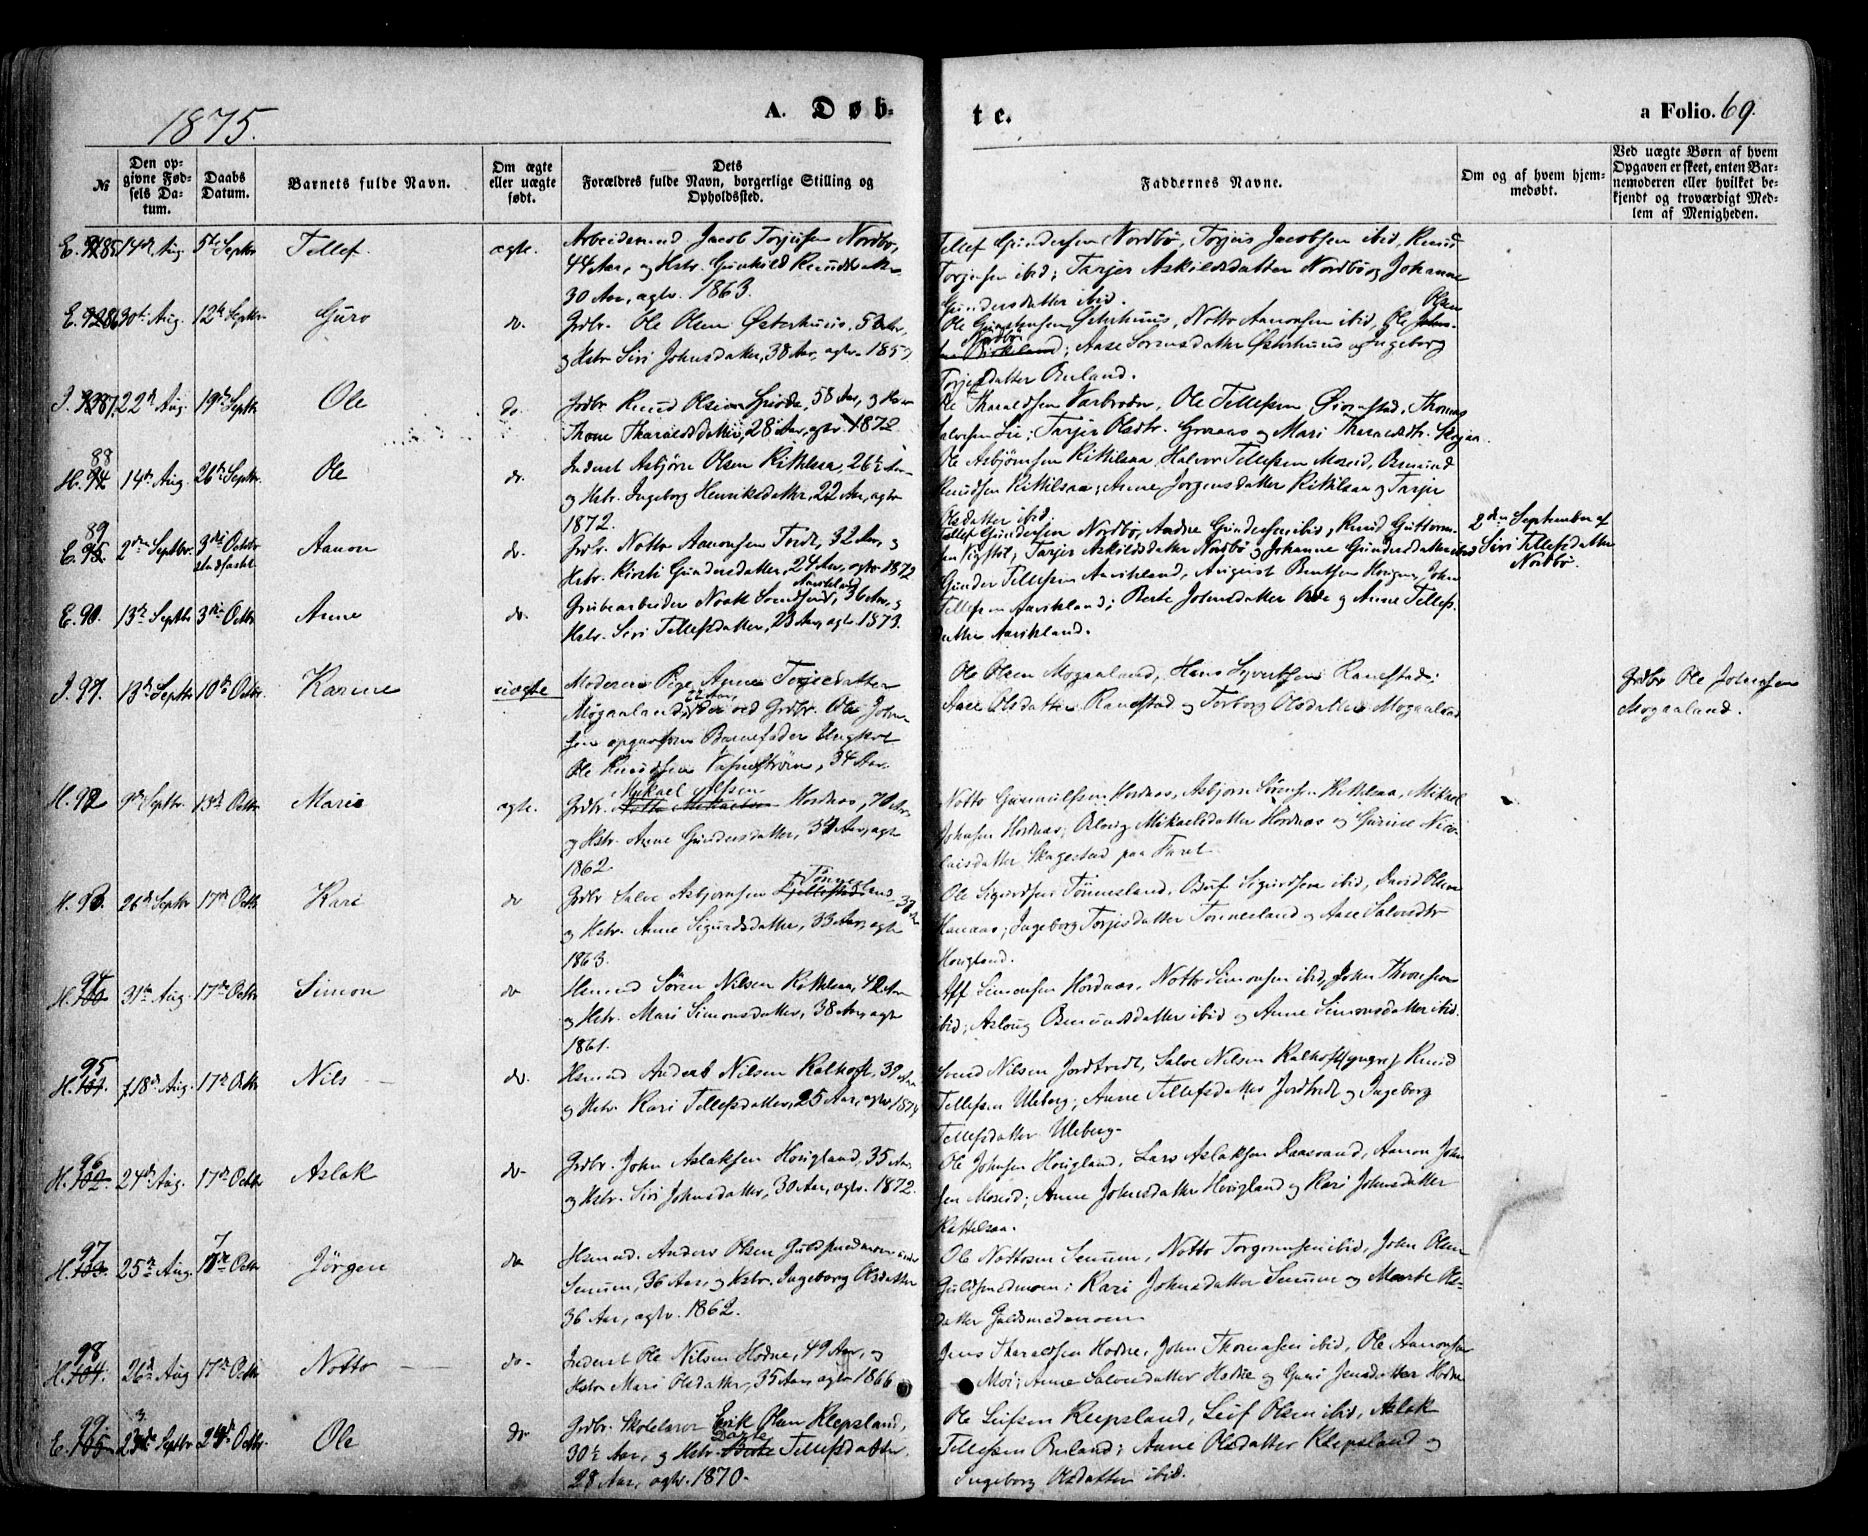 1875.
A. Døb-
te.
a Folio. 69.
№
Den op-
givne Fød-
sels Da-
tum.
Daabs
Datum.
Barnets fulde Navn.
Om ægte
eller uægte
født.
Dets
Forældres fulde Navn, borgerlige Stilling og
Opholdssted.
Faddernes Navne.
Om og af hvem hjem-
medøbt.
Ved uægte Børn af hvem
Opgaven er skeet, enten Bar-
nemoderen eller hvilket be-
kjendt og troværdigt Med-
lem af Menigheden.
E. 85 14de Aug. 5te Septbr Tellef. ægte.
Arbeidsmand Jacob Torjusen Nordbø,
44 Aar, og Hstr. Gunhild Knudsdatter
30 Aar, agtv. 1863.
Tellef Gundersen Nordbø, Torjus Jacobsen ibid, Knud
Torjusen ibid; Tarjer Askildsdatter Nordbø og Johanne
Gundersdatter ibid.
E. 86 30te Aug. 12te Septbr. Guro do.
Grdbr. Ole Olsen Østerhuus, 50 Aar,
og Hstr. Siri Johnsdatter, 38 Aar, agtv. 185
Ole Østerhuus, Notto Aanonsen ibid, Ole Olsen
Nordbø; Aase Sørensdatter Østerhuus og Ingeborg
Torjesdatter Buland.
J. 87 22de Aug. 19de Septbr Ole do.
Grdbr Knud Olsen 58 Aar, og Hstr
Thone Tharaldsdatter, 28 Aar, agtv. 1872
Ole Tharaldsen Ole Tellefsen Øvernstad, Thomas
Salvesen Lie; Tarjer Olsdtr. og Mari Tharaldsdtr.
H. 88 14de Aug. 26de Septbr. Ole do.
Inderst Asbjørn Olsen Kittelsaa, 26½ Aar
og Hstr. Ingeborg Henriksdatter, 22 Aar, agtv
1872.
Ole Asbjørnsen Kittilsaa, Halvor Tellefsen Moseid, Osmund
Knudsen Kittilsaa; Anne Jørgensdatter Kittilsaa og Tarjer
Olsdatter ibid.
E. 89 2den Septbr. 3die Octbr Aanon do.
stadfæstet
Grdbr. Notto Aanonsen 32 Aar, og
Hstr. Kirsti Gundersdatter, 24 Aar, agtv 1872
Tellef Gundersen Nordbø, Andre Gundersen ibid, Knud Guttorm-
sen Tarjer Askildsdatter Nordbø og Johanne Gundersdatter ibid
2den September af
Siri Tellefsdatter
Nordbø.
E. 90. 13de Septbr 3die Octbr Anne do.
Grubearbeider Noak Aavikland, 36 Aar, og
Hstr. Siri Tellefsdatter, 23 Aar, agtv. 1873.
Gunder Tellefsen Aavikland, August Bentsen John
Tellefsen Aavikland; Berte Johnsdatter og Anne Tellefs-
datter Aavikland.
J. 91. 13de Septbr 10de Octbr. Karine uægte
Moderen Pige Anne Terjesdatter
Mogaaland, 22 Aar, ved Grdbr. Ole John-
sen opgiven Barnefader Ungkarl
Ole Knudsen 34 Aar.
Ole Olsen Mogaaland, Hans Syvertsen Ranestad;
Aase Olsdatter Ranestad og Torborg Olsdatter Mogaaland
Grdbr Ole Johnsen
Mogaaland.
H. 92 9de Septbr 13de Octbr. Marie ægte.
Grdbr. Mykael Hordnæs, 70 Aar,
og Hstr. Anne Gundersdatter, 34 Aar, agtv
1862
Notto Gunnulfsen Hordnæs, Asbjørn Sørensen Kittilsaa, Mikael
Johnsen Hordnæs; Mikaelsdatter Hordnæs og Gurine Nico-
laisdatter Skagestad paa Faret.
H. 93. 26de Septbr 17de Octbr. Kari do
Grdbr Salve Asbjørnsen Tønnesland
og Hstr. Anne Sigurdsdatter, 33 Aar, agtv
1863.
Ole Sigurdsen Tønnesland, Sigurdsen ibid, David Olsen
Hanaas; Ingeborg Torjesdatter Tønnesland og Aase Salvesdtr
Hougland.
H. 94 31te Aug. 17de Octbr. Simon do
Hsmand Søren Nilsen Kittilsaa, 42 Aar
og Hstr. Mari Simonsdatter, 38 Aar, agtv
1861.
Aff Simonsen Hordnæs, Notto Simonsen ibid, John Thomsen
ibid; Aslaug Osmundsdatter ibid og Anne Simonsdatter ibid.
H. 95 18de Aug. 17de Octbr Nils do.
Hsmand Anders Nilsen Kalhoft, 39 Aar
og Hstr. Kari Tellefsdatter, 25 Aar, agtv 1874
Svend Nilsen Jordtredt, Salve Nilsen Kalhoft (yngre), Knud
Tellefsen Uleberg; Anne Tellefsdatter Jordtredt og Ingeborg
Tellefsdatter Uleberg.
H. 96 24de Aug. 17de Octbr Aslak do.
Grdbr. John Aslaksen Hougland, 35 Aar
og Hstr. Siri Johnsdatter, 30 Aar, agtv. 1872.
Ole Johnsen Hougland, Lars Aslaksen Aanon John-
sen Moseid; Anne Johnsdatter Hougland og Kari Johnsdatter
Kittelsaa.
H. 97 25de Aug. 17de Octbr Jörgen do
Hsmand. Anders Olsen Guldsmedmoen under
Senum, 36 Aar, og Hstr. Ingeborg Olsdatter
36 Aar, agtv. 1862.
Ole Nottosen Senum, Notto Torgrimsen ibid, John Olsen
Guldsmedmoen; Kari Johnsdatter Senum og Marte Ols-
datter Guldsmedmoen
H. 98 26de Aug 17de Octbr Notto do.
Inderst Ole Nilsen Hodne, 49 Aar, og
Hstr Mari Olsdatter, 35 Aar, agtv 1866
Jens Tharaldsen Hodne, John Thomasen ibid, Ole Aanonsen
Moi; Anne Salvesdatter Hodne og Guri Jensdatter Hodne
E. 99 23de Septbr 24de Octbr. Ole do
Grdbr. Skolelærer Erik Olsen Klepsland,
30½ Aar, og Hstr. Tellefsdatter.
28 Aar, agtv. 1870.
Ole Leifsen Klepsland, Leif Olsen ibid, Aslak
Tellefsen Buland; Anne Olsdatter Klepsland og
Ingeborg Olsdatter ibid.